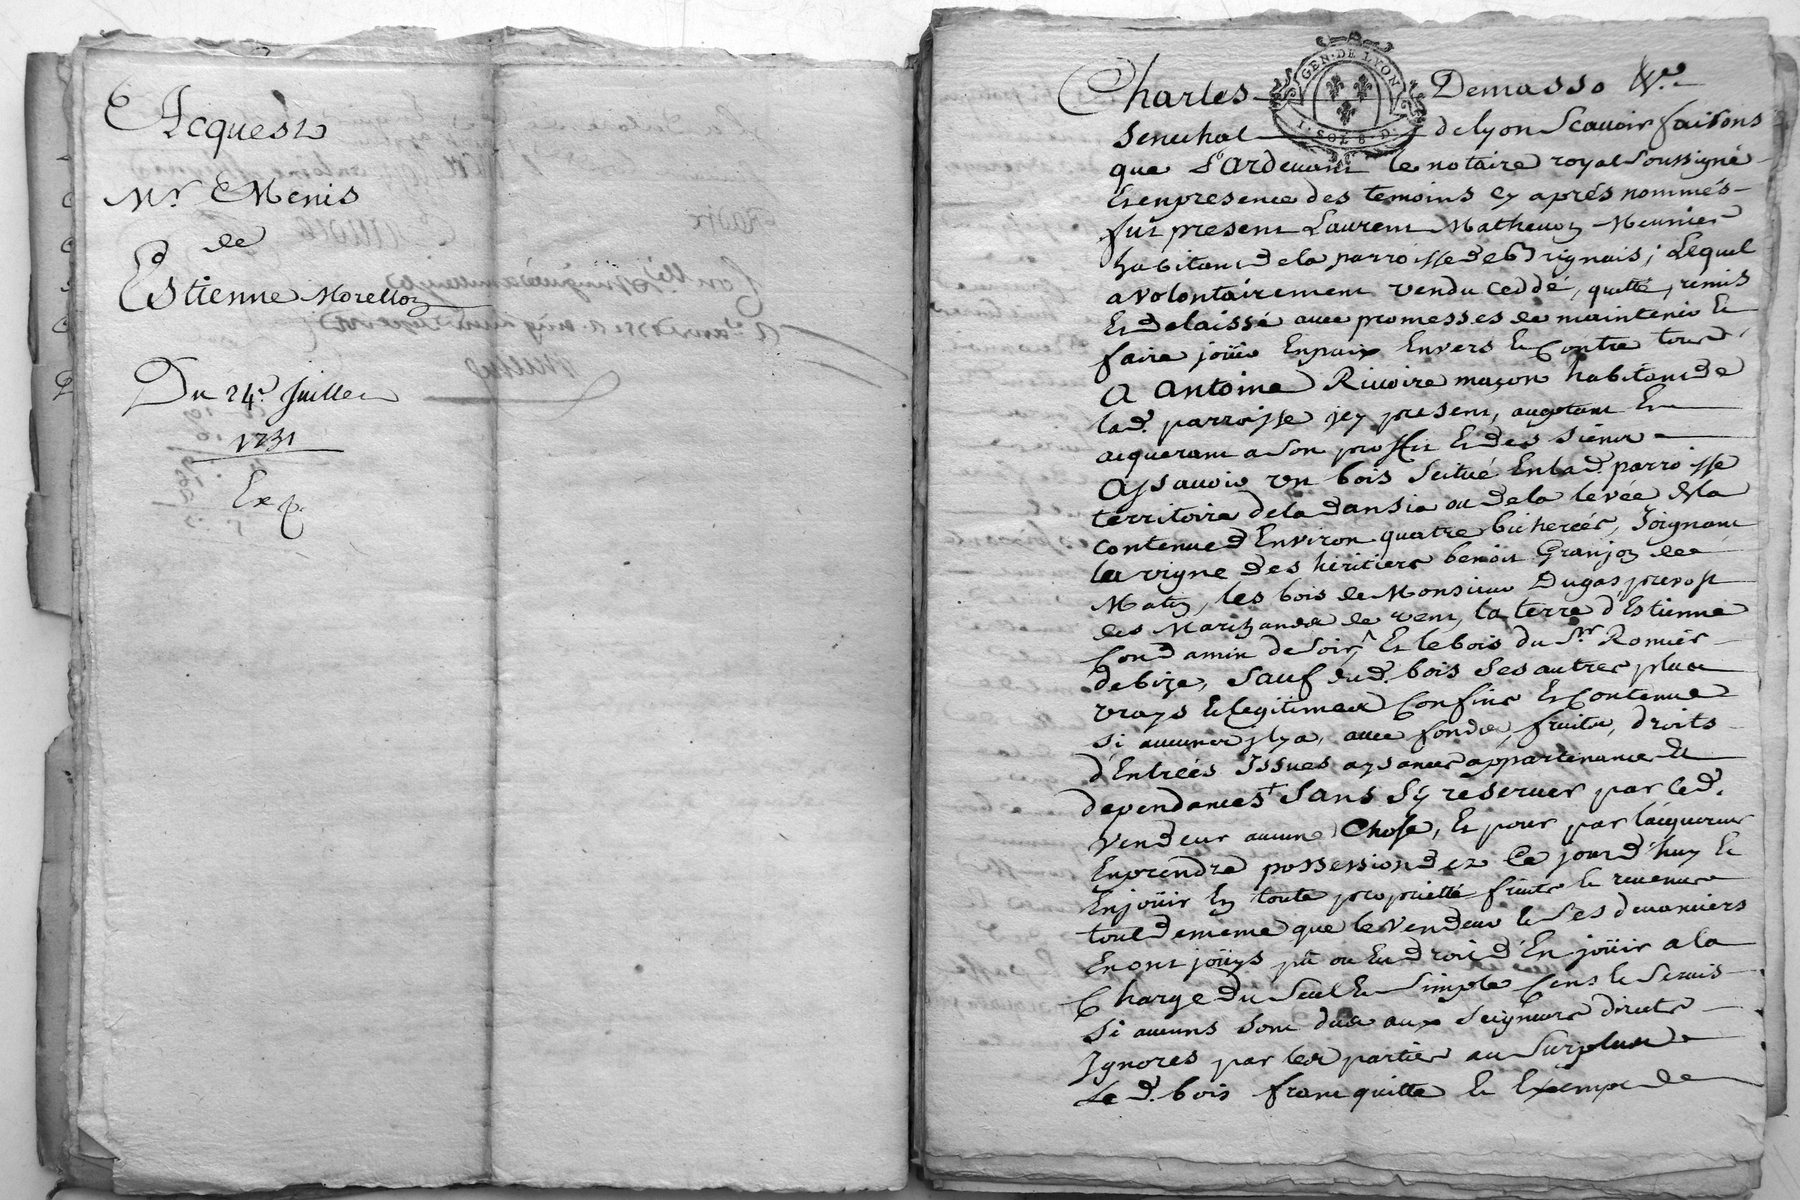 Acquest
Mr. Menis
de
Estienne Morellon
Du 24e. Juillet
1731
Exp.
GEN·DE LYON
1·SOL 8·D.
Charles Demasso
Senechal de lyon Scauoir faisons
que Pardeuant le notaire royal Soussigné
Et enpresence des temoins cy aprés nommés
fut present Laurent Matheuon Meunier
habitant de la parroisse de Brignais, Lequel
a volontairement vendu ceddé, quitté, remis
Et delaissé auec promesses de maintenir Et
faire joüir En paix Envers Et Contre tous
A Antoine Riuoire maçon habitant de
lad. parroisse jcy present, acceptant Et
acquerant a son proffit Et des siens
Assauoir un bois scitué En lad. parroisse
territoire de la dansia ou de la levée de la
contenue d'Environ quatre bicherées, Joignant
la vigne des héritiers benoit Granjon de
Matin, les bois de Monsieur Dugas preuost
des Marchands de vent, la terre d'Estienne
Condamin de Soir, Et le bois du Sr. Romier
de bize, Sauf dud. bois Ses autres plus
vrays Et legitimes Confins Et Contenue
Si aucunes jl y a, auec fonds, fruits, droits
d'Entrées Issues aysances appartenances Et
dependances Sans S'y reseruer par led.
Vendeur aucune Chose, Et pour par l'acquereur
En prendre possession dez Ce jourd'huy Et
En joüir En toute proprietté fruits Et reuenus
tout de meme que le Vendeur Et Ses deuanciers
En ont joüys pû ou eu droit d'En joüir a la
Charge du Seul Et Simple Cens Et Seruis
Si aucuns sont dus aux Seigneurs directs
Ignorés par les parties au Surplus
Le d. bois franc quitte Et Exempt de